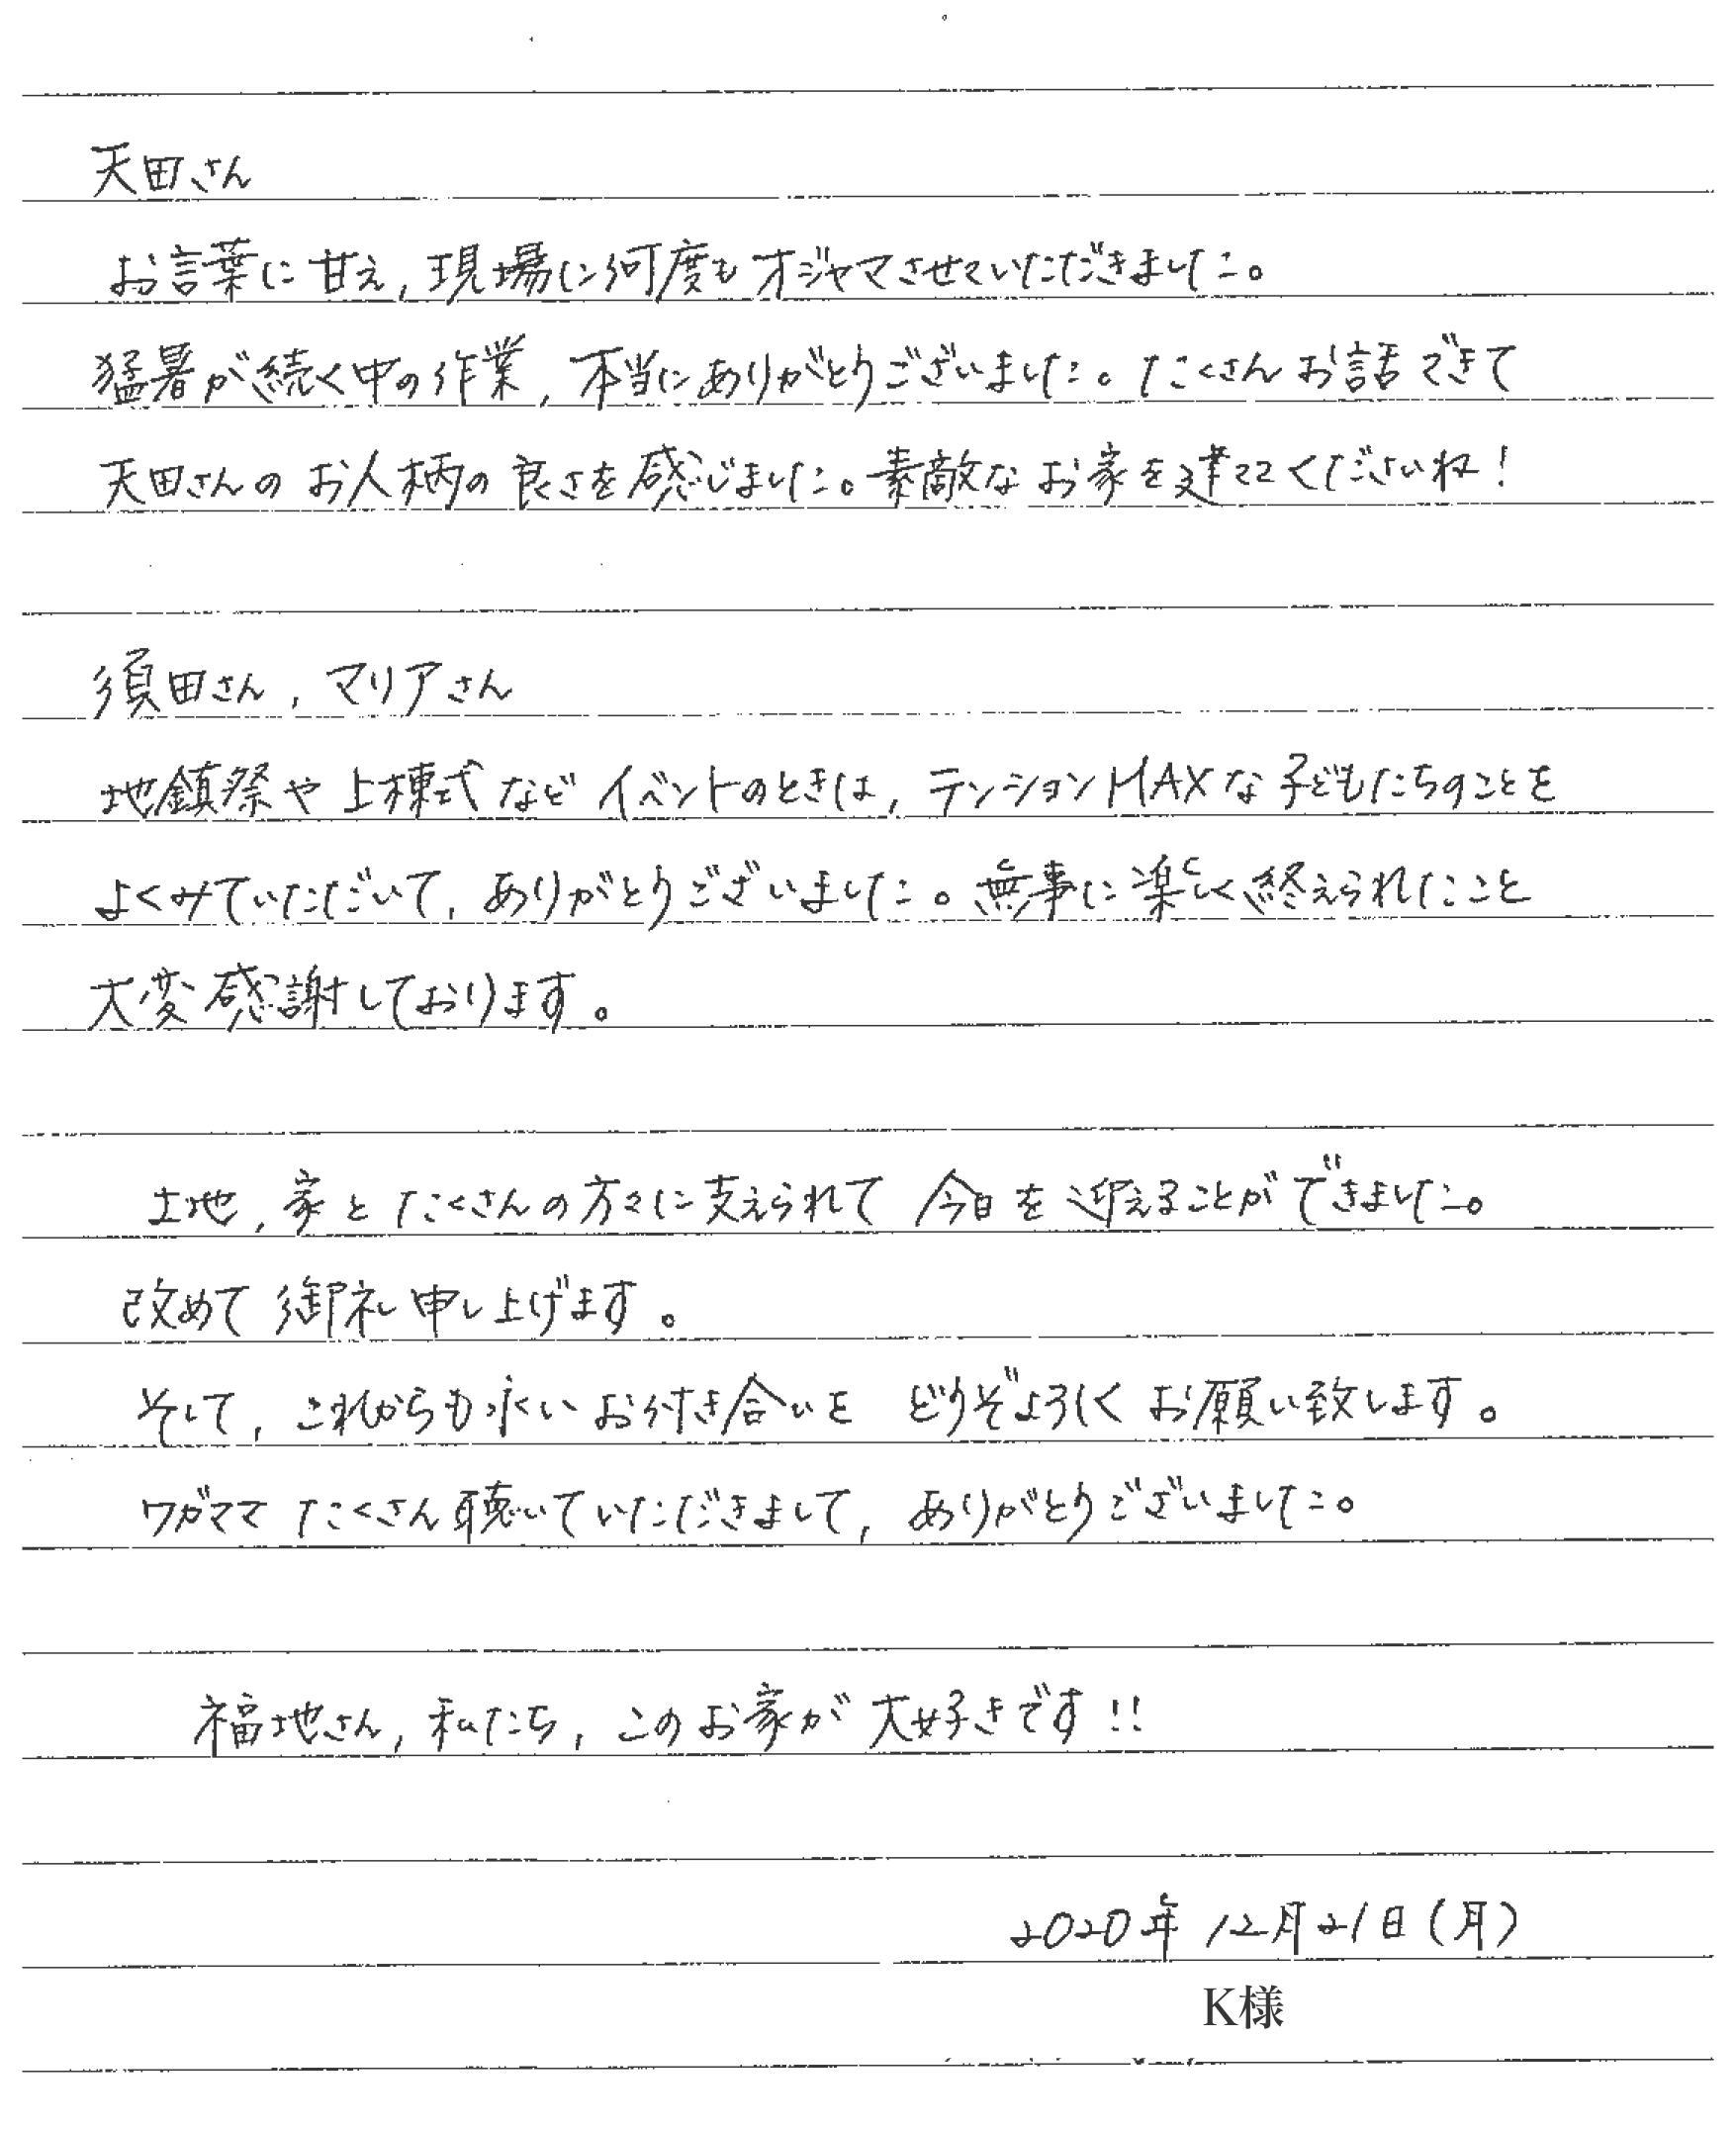 天田さん
お言葉に甘え,現場に何度もオジャマさせていただきました。
猛暑が続く中の作業,本当にありがとうございました。たくさんお話できて
天田さんのお人柄の良さを感じました。素敵なお家を建ててくださいね!
須田さん,マリアさん
地鎮祭や上棟式などイベントのときは,テンションMAXな子どもたちのことを
よくみていただいて,ありがとうございました。無事に楽しく終えられたこと
大変感謝しております。
土地,家とたくさんの方々に支えられて今日を迎えることができました。
改めて御礼申し上げます。
そして,これからも永いお付き合いをどうぞよろしくお願い致します。
ワガママたくさん聴いていただきまして,ありがとうございました。
福地さん,私たち,このお家が大好きです!!
2020年12月21日(月)
K様